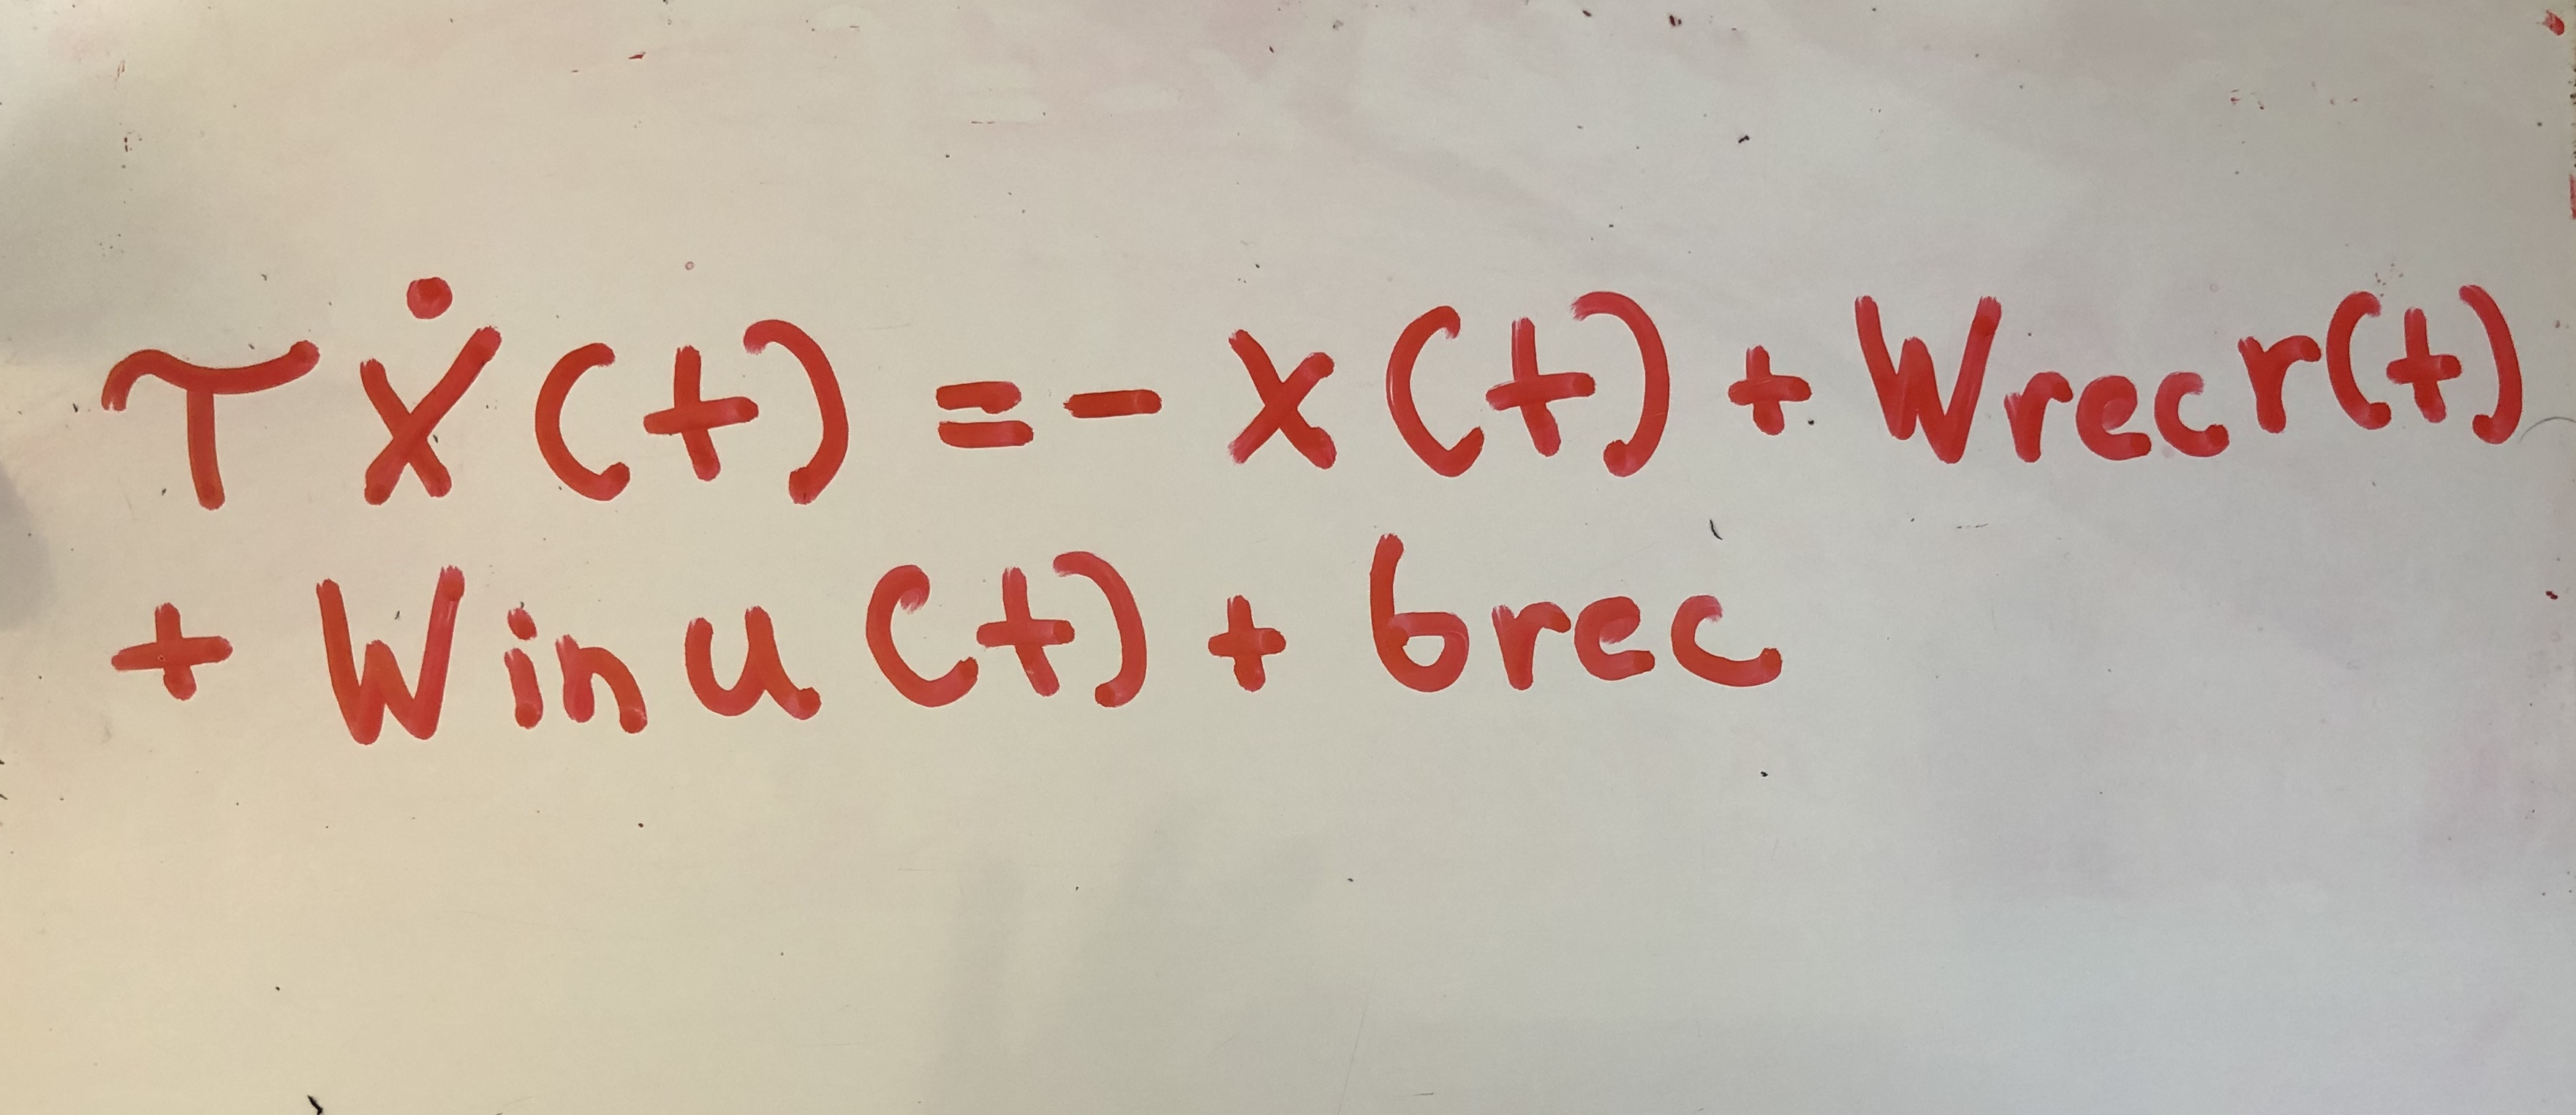 τẋ(t) = - x(t) + Wrec r(t)
+ Win u(t) + brec